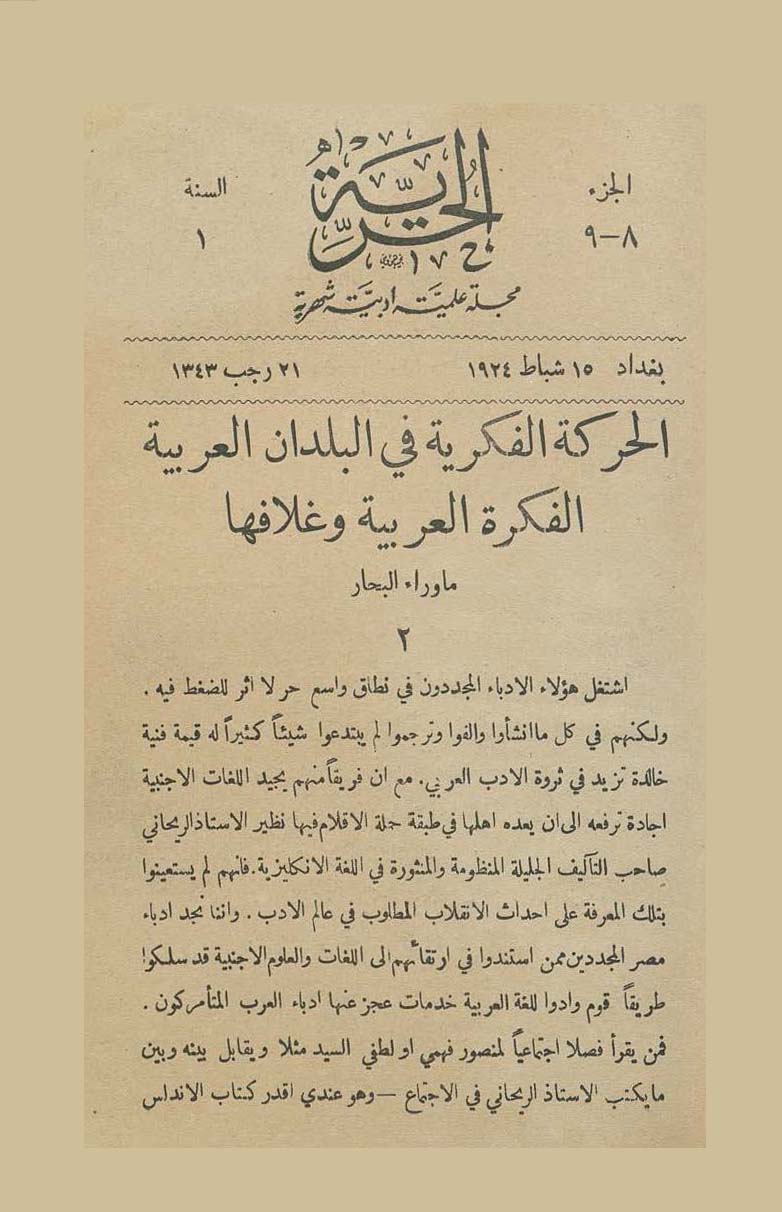 الجزء
٨–٩
الحرية
السنة
١
مجلة علمية ادبية شهرية
بغداد ١٥ شباط ١٩٢٤
٢١ رجب ١٣٤٣
الحركة الفكرية في البلدان العربية
الفكرة العربية وغلافها
ماوراء البحار
٢
اشتغل هؤلاء الادباء المجددون في نطاق واسع حر لا اثر للضغط فيه .
ولكنهم في كل ماانشأوا والفوا وترجموا لم يبتدعوا شيئاً كثيراً له قيمة فنية
خالدة تزيد في ثروة الادب العربي . مع ان فريقاً منهم يجيد اللغات الاجنبية
اجادة ترفعه الى ان يعده اهلها في طبقة حملة الاقلام فيها نظير الاستاذ الريحاني
صاحب التآليف الجليلة المنظومة والمنثورة في اللغة الانكليزية . فانهم لم يستعينوا
بتلك المعرفة على احداث الانقلاب المطلوب في عالم الادب . واننا نجد ادباء
مصر المجددين ممن استندوا في ارتقائهم الى اللغات والعلوم الاجنبية قد سلكوا
طريقاً قوم وادوا للغة العربية خدمات عجز عنها ادباء العرب المتأمركون .
فمن يقرأ فصلا اجتماعياً لمنصور فهمي او لطفي السيد مثلا ويقابل بينه وبين
مايكتب الاستاذ الريحاني في الاجتماع – وهو عندي اقدر كتاب الاندلس